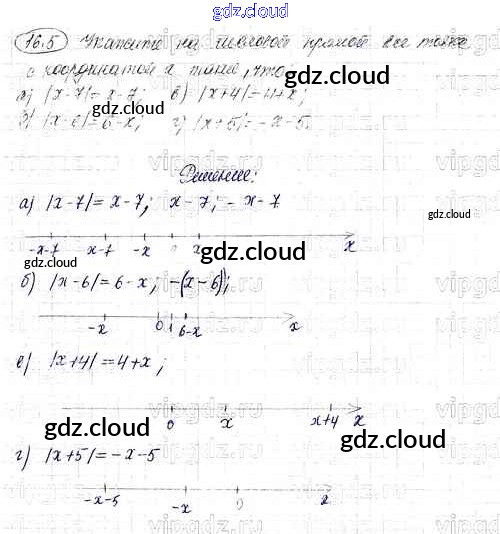 gdz.cloud
16.5 Укажите на числовой прямой все точки
с координатой x такие, что:
а) |x-7|=x-7; в) |x+4|=4+x;
б) |x-6|=6-x; г) |x+5|=-x-5.
gdz.cloud gdz.cloud
Решение:
а) |x-7|=x-7; x-7; -x-7
gdz.cloud
-x-7 x-7 -x x x
gdz.cloud gdz.cloud
б) |x-6|=6-x; -(x-6);
-x 0 1 6-x x
в) |x+4|=4+x;
gdz.cloud
0 x x+4
gdz.cloud gdz.cloud
г) |x+5|=-x-5
-x-5 -x 0
gdz.cloud